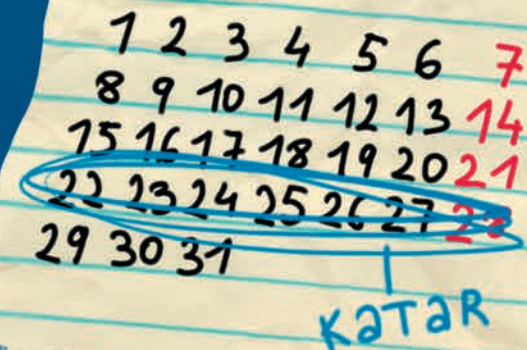 1 2 3 4 5 6 7
8 9 10 11 12 13 14
15 16 17 18 19 20 21
22 23 24 25 26 27 28
29 30 31
KaTaR